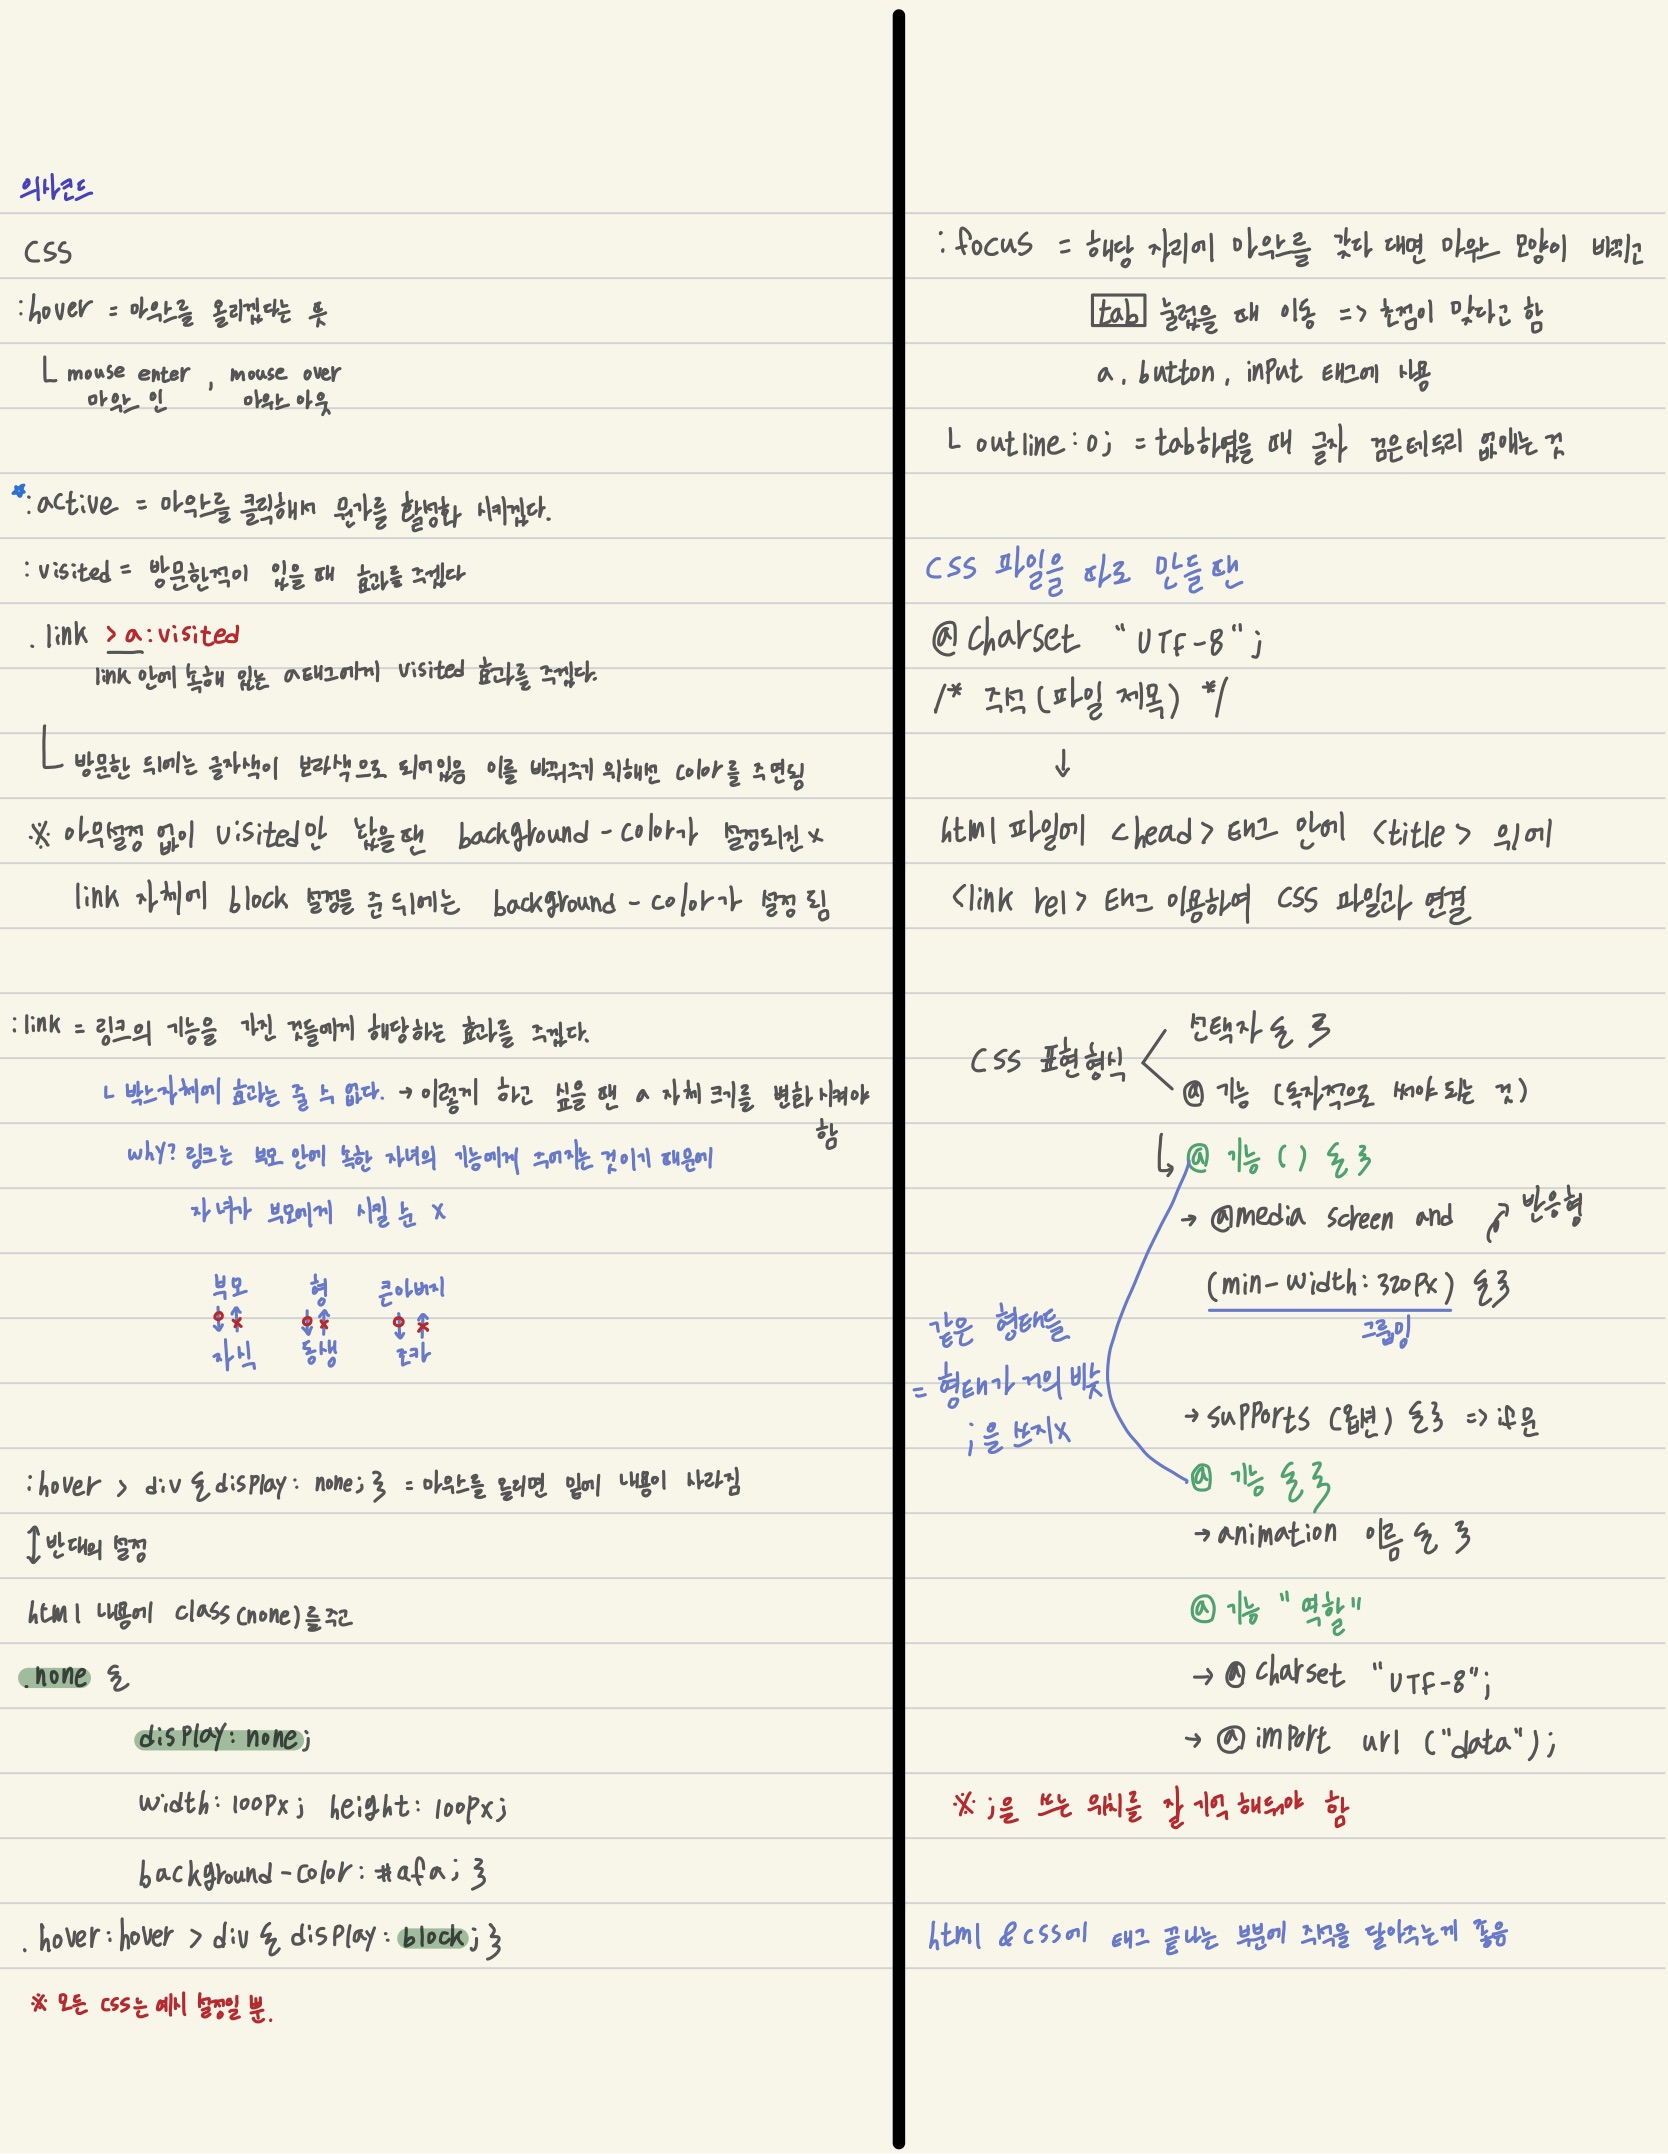 의사코드
CSS
:hover = 마우스를 올리겠다는 뜻
└ mouse enter , mouse over
마우스 인 마우스 아웃
★:active = 마우스를 클릭해서 뭔가를 활성화 시키겠다.
:visited = 방문한적이 있을 때 효과를 주겠다
.link > a:visited
link 안에 속해 있는 a태그에게 visited 효과를 주겠다.
└ 방문한 뒤에는 글자색이 보라색으로 되어있음 이를 바꿔주기 위해선 color를 주면됨
※ 아무설정 없이 visited만 놨을땐 background-color가 설정되진 x
link 자체에 block 설정을 준 뒤에는 background-color가 설정 됨
:link = 링크의 기능을 가진 것들에게 해당하는 효과를 주겠다.
└ 박스자체에 효과는 줄 수 없다. → 이렇게 하고 싶을 땐 a 자체 크기를 변화 시켜야
함
why? 링크는 부모 안에 속한 자녀의 기능에게 주어지는 것이기 때문에
자녀가 부모에게 시킬 순 x
부모 형 큰아버지
↓ ↑ ↓ ↑ ↓ ↑
자식 동생 조카
:hover > div {display: none;} = 마우스를 올리면 밑에 내용이 사라짐
↕ 반대의 설정
html 내용에 class(none)를 주고
.none {
display: none;
width: 100px; height: 100px;
background-color: #afa; }
.hover:hover > div { display: block; }
※ 모든 css는 예시 설정일 뿐.
:focus = 해당 자리에 마우스를 갖다 대면 마우스 모양이 바뀌고
tab 눌렀을 때 이동 => 초점이 맞다고 함
a, button, input 태그에 사용
└ outline: 0; = tab하였을 때 글자 검은테두리 없애는 것
CSS 파일을 따로 만들땐
@charset "UTF-8";
/* 주석(파일 제목) */
↓
html 파일에 <head> 태그 안에 <title> 위에
<link rel> 태그 이용하여 CSS 파일과 연결
선택자 { }
CSS 표현형식 <
@ 기능 (독자적으로 써야 되는 것)
↳ @ 기능 ( ) { }
→ @media screen and 반응형
(min-width: 320px) { }
그룹핑
같은 형태들
= 형태가 거의 비슷
;을 쓰지x
→ supports (옵션) { } => if문
@ 기능 { }
→ animation 이름 { }
@ 기능 "역할"
→ @ charset "UTF-8";
→ @ import url ("data");
※ ;을 쓰는 위치를 잘 기억 해둬야 함
html & css에 태그 끝나는 부분에 주석을 달아주는게 좋음